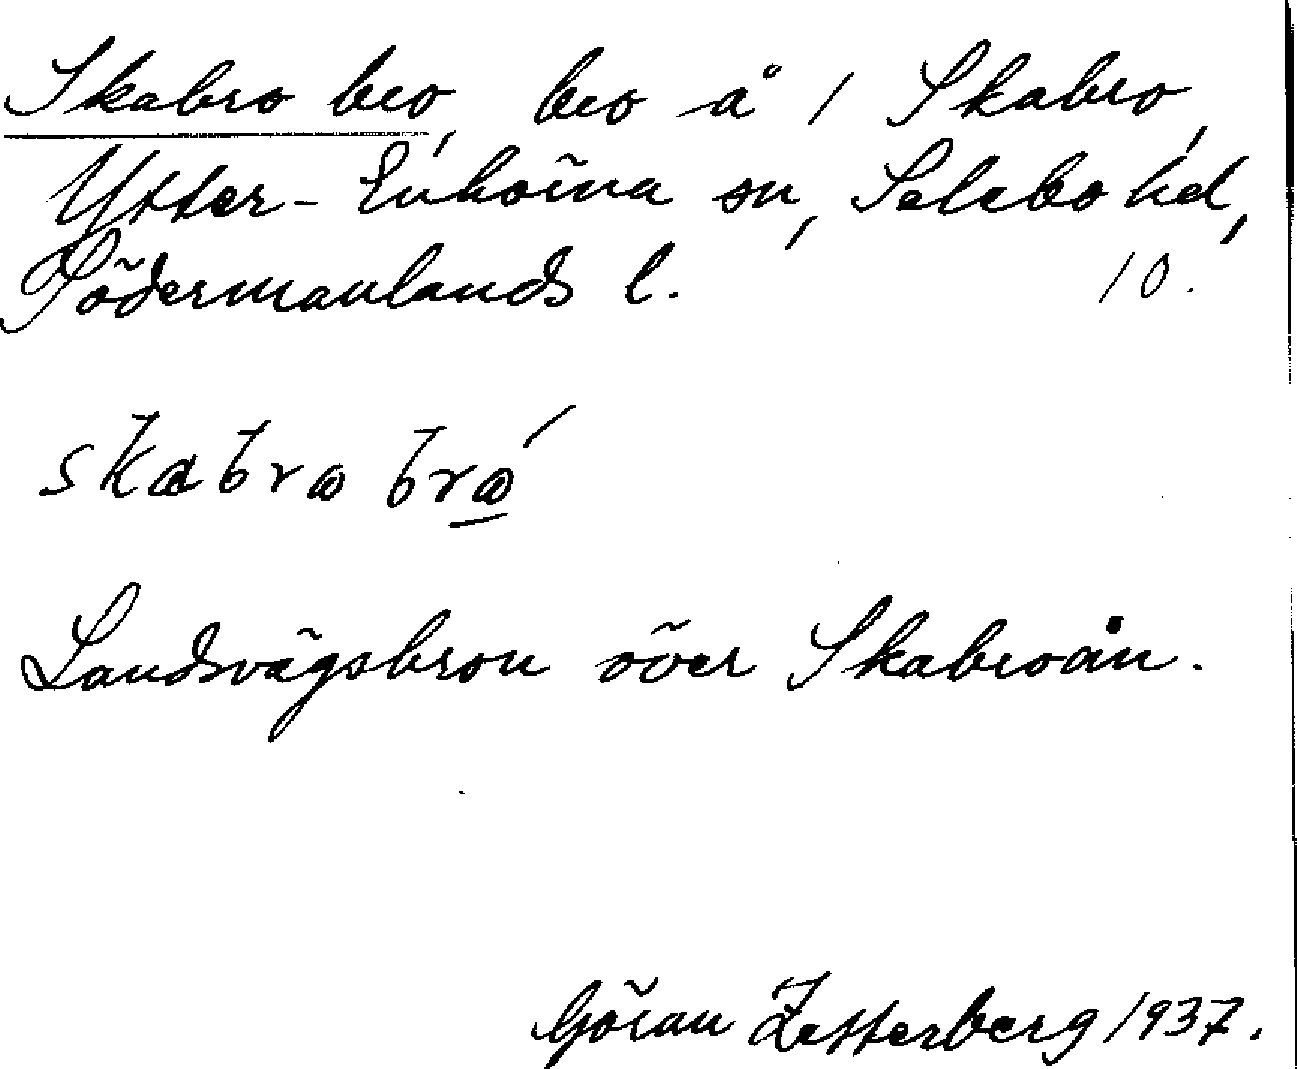 Skabro bro, bro å 1 Skabro,
Ytter-Enhörna sn, Selebo hd,
Södermanlands l. 10.
skabro bró
Landsvägsbron över Skabroån.
Göran Zetterberg 1937.